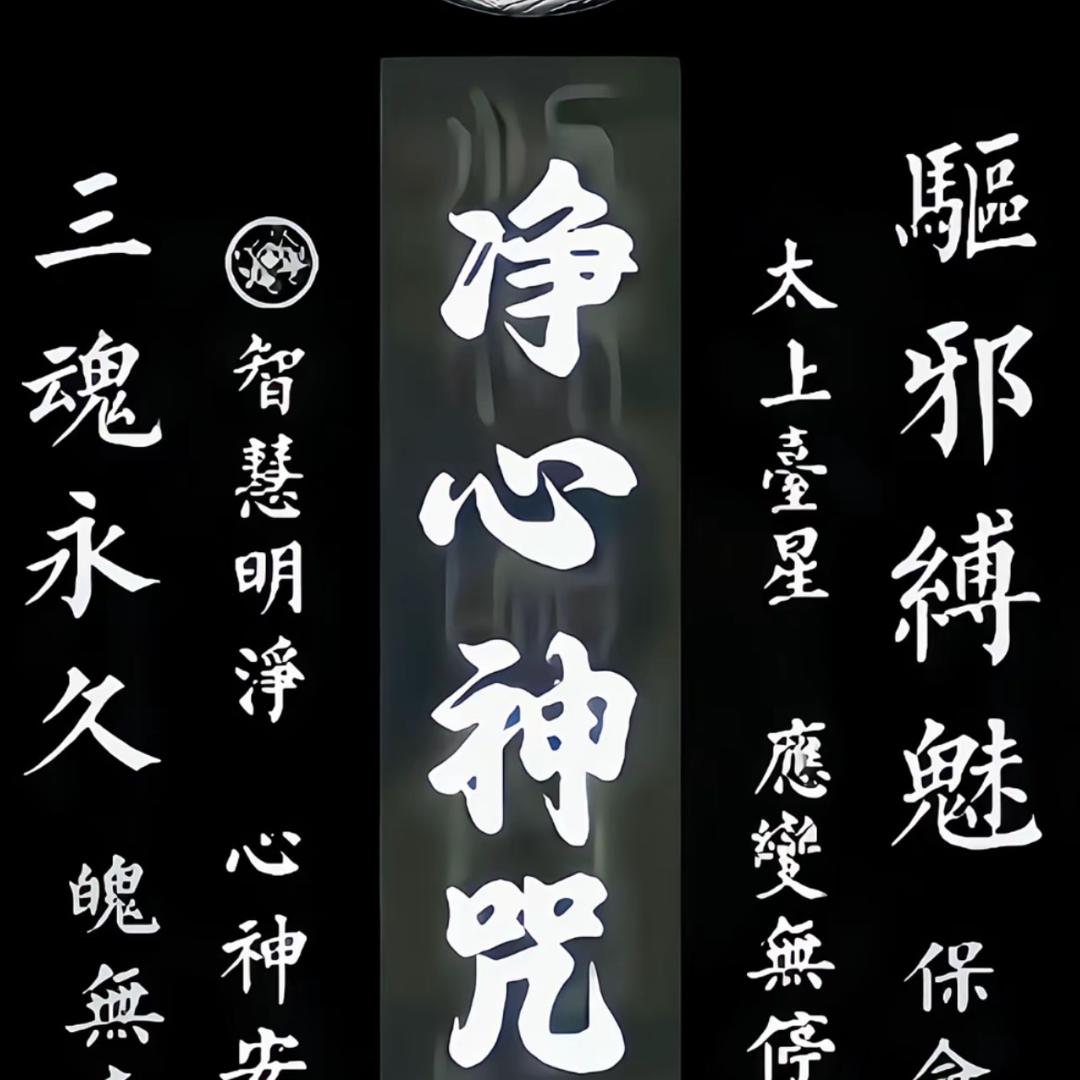 驅邪縛魅 保
太上臺星 應變無停
净心神咒
智慧明淨 心神安
三魂永久 魄無